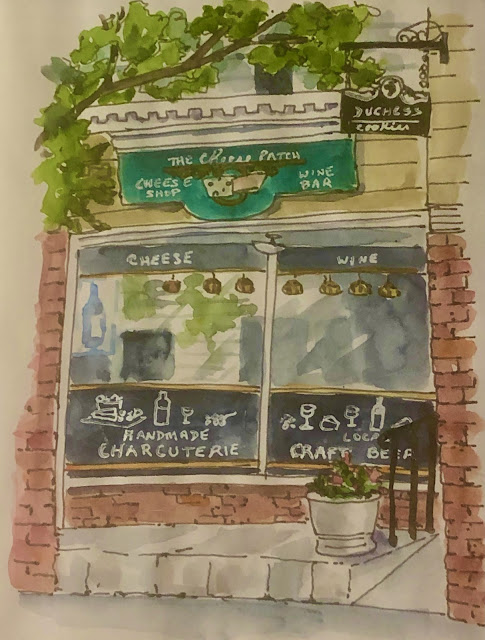 DUCHESS
cookies
THE CHEESE PATCH
CHEESE SHOP
WINE BAR
CHEESE
WINE
HANDMADE
CHARCUTERIE
LOCAL
CRAFT BEER